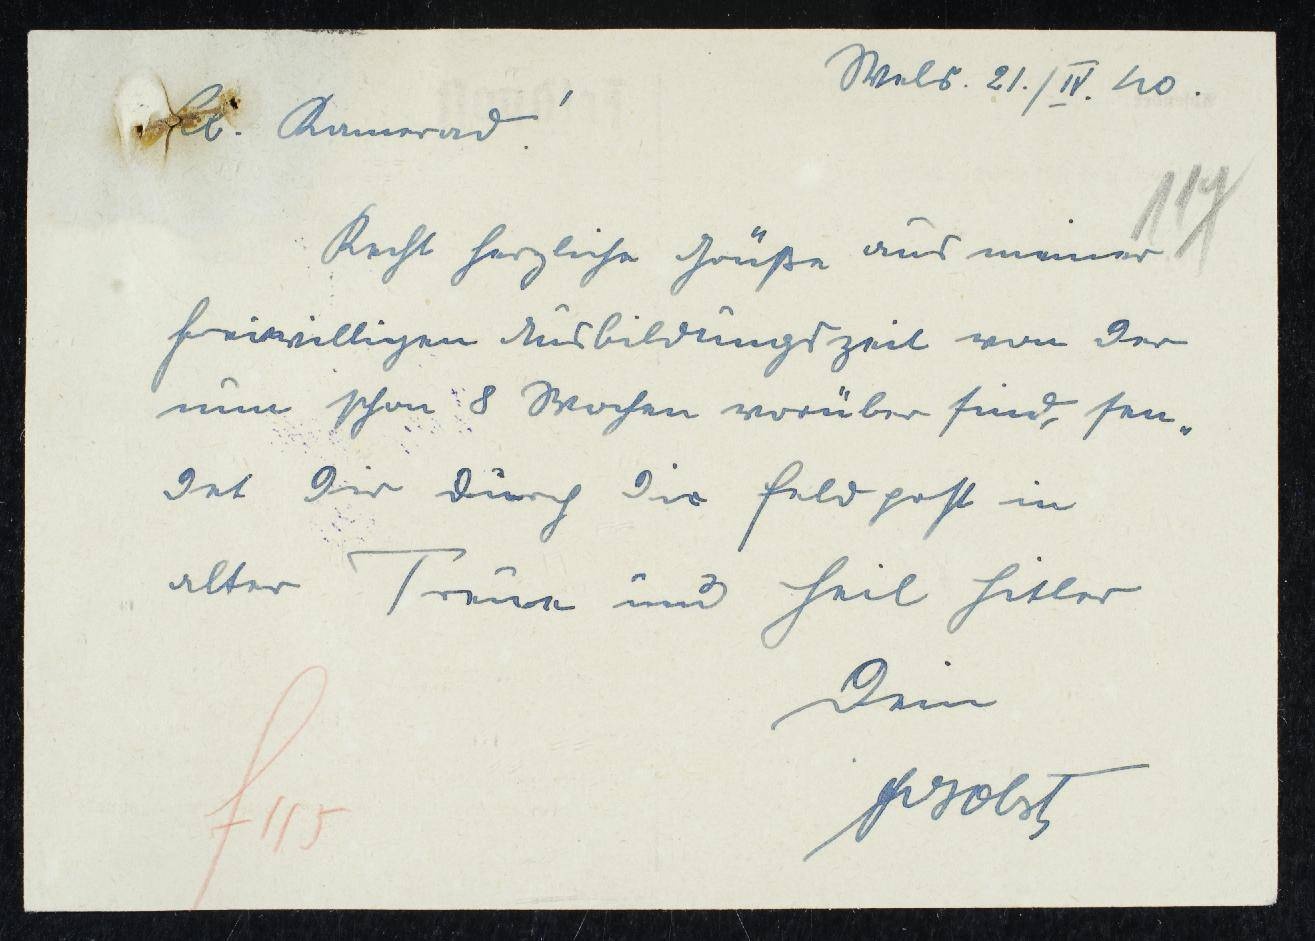 Wels. 21./IV. 40.
Lb. Kamerad!
117
Recht herzliche Grüße aus meiner
freiwilligen Ausbildungszeit von der
nun schon 8 Wochen vorüber sind, sen„
det Dir durch die Feldpost in
alter Treue und Heil Hitler
Dein
Probst
f 115